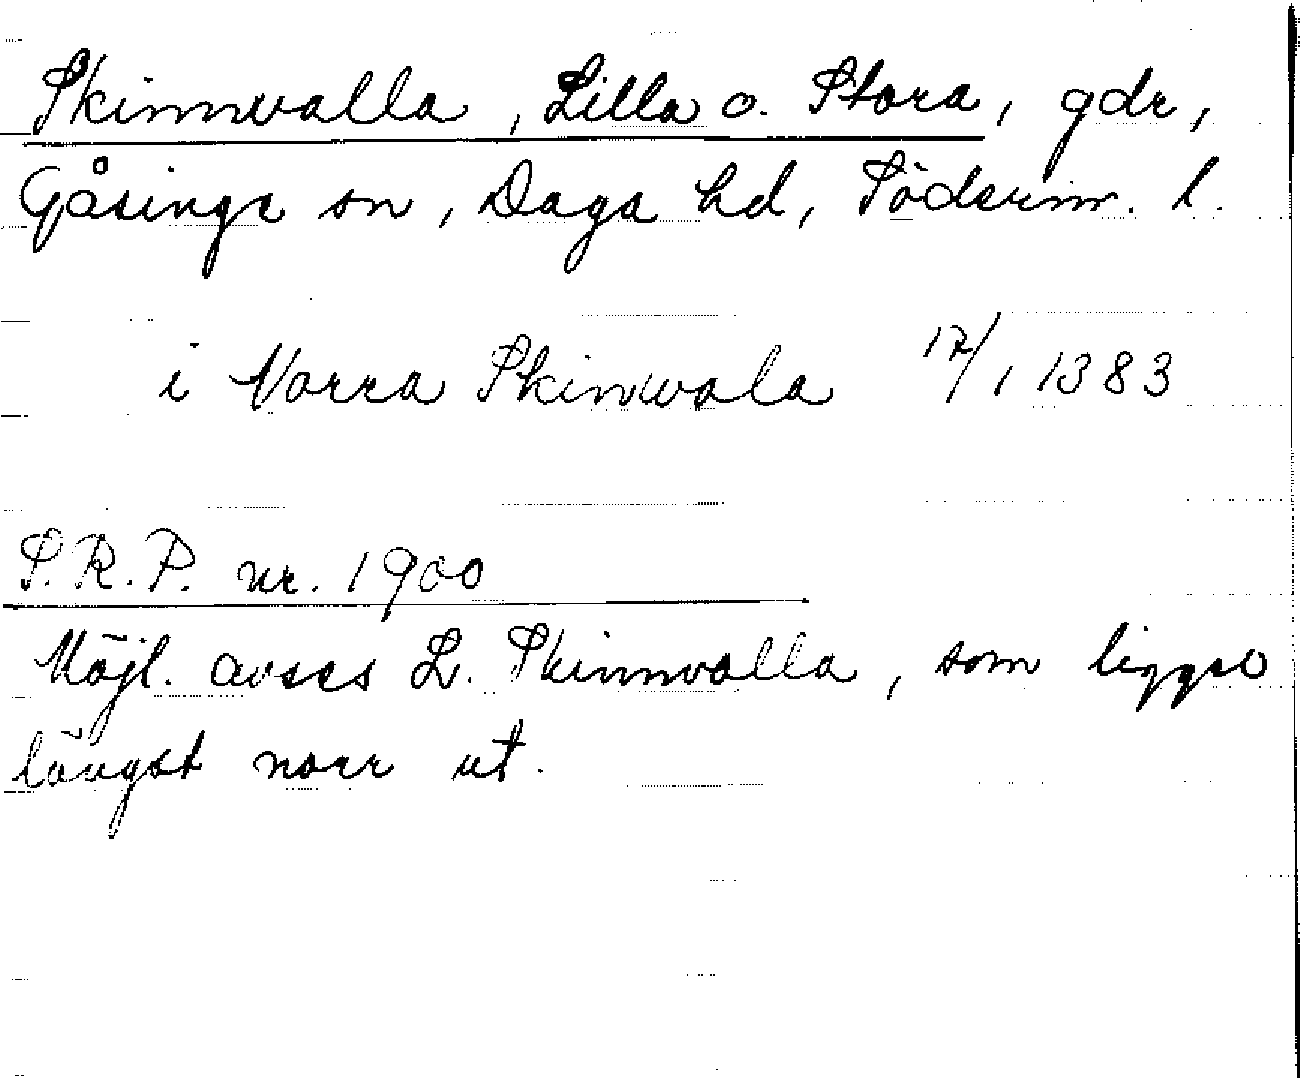 Skinnvalla, Lilla o. Stora, gdr,
Gåsinge sn, Daga hd, Söderm. l.
i Norra Skinwala 17/1 1383
S.R.P. nr. 1900
Möjl. avses L. Skinnvalla, som ligger
längst norr ut.